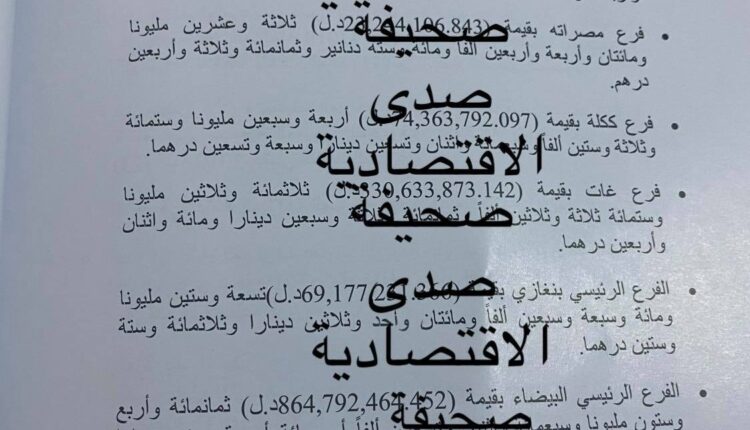 فرع مصراته بقيمة (23,244,106.843د.ل) ثلاثة وعشرين مليونا
ومائتان وأربعة وأربعين ألفا ومائة وستة دنانير وثمانمائة وثلاثة وأربعين
درهم.
صحيفة
صدى
الاقتصادية
فرع ككلة بقيمة (74,363,792.097د.ل) أربعة وسبعين مليونا وستمائة
وثلاثة وستين ألفاً وسبعمائة واثنان وتسعين دينارا وسبعة وتسعين درهما.
فرع غات بقيمة (330,633,873.142د.ل) ثلاثمائة وثلاثين مليونا
وستمائة ثلاثة وثلاثين ألفاً وثمانمائة وثلاثة وسبعين دينارا ومائة واثنان
وأربعين درهما.
صحيفة
صدى
الاقتصادية
الفرع الرئيسي بنغازي بقيمة (69,177,231.366د.ل) تسعة وستين مليونا
ومائة وسبعة وسبعين ألفاً ومائتان وأحد وثلاثين دينارا وثلاثمائة وستة
وستين درهما.
الفرع الرئيسي البيضاء بقيمة (864,792,464.452د.ل) ثمانمائة وأربع
وستون مليونا وسبعمائة
صحيفة